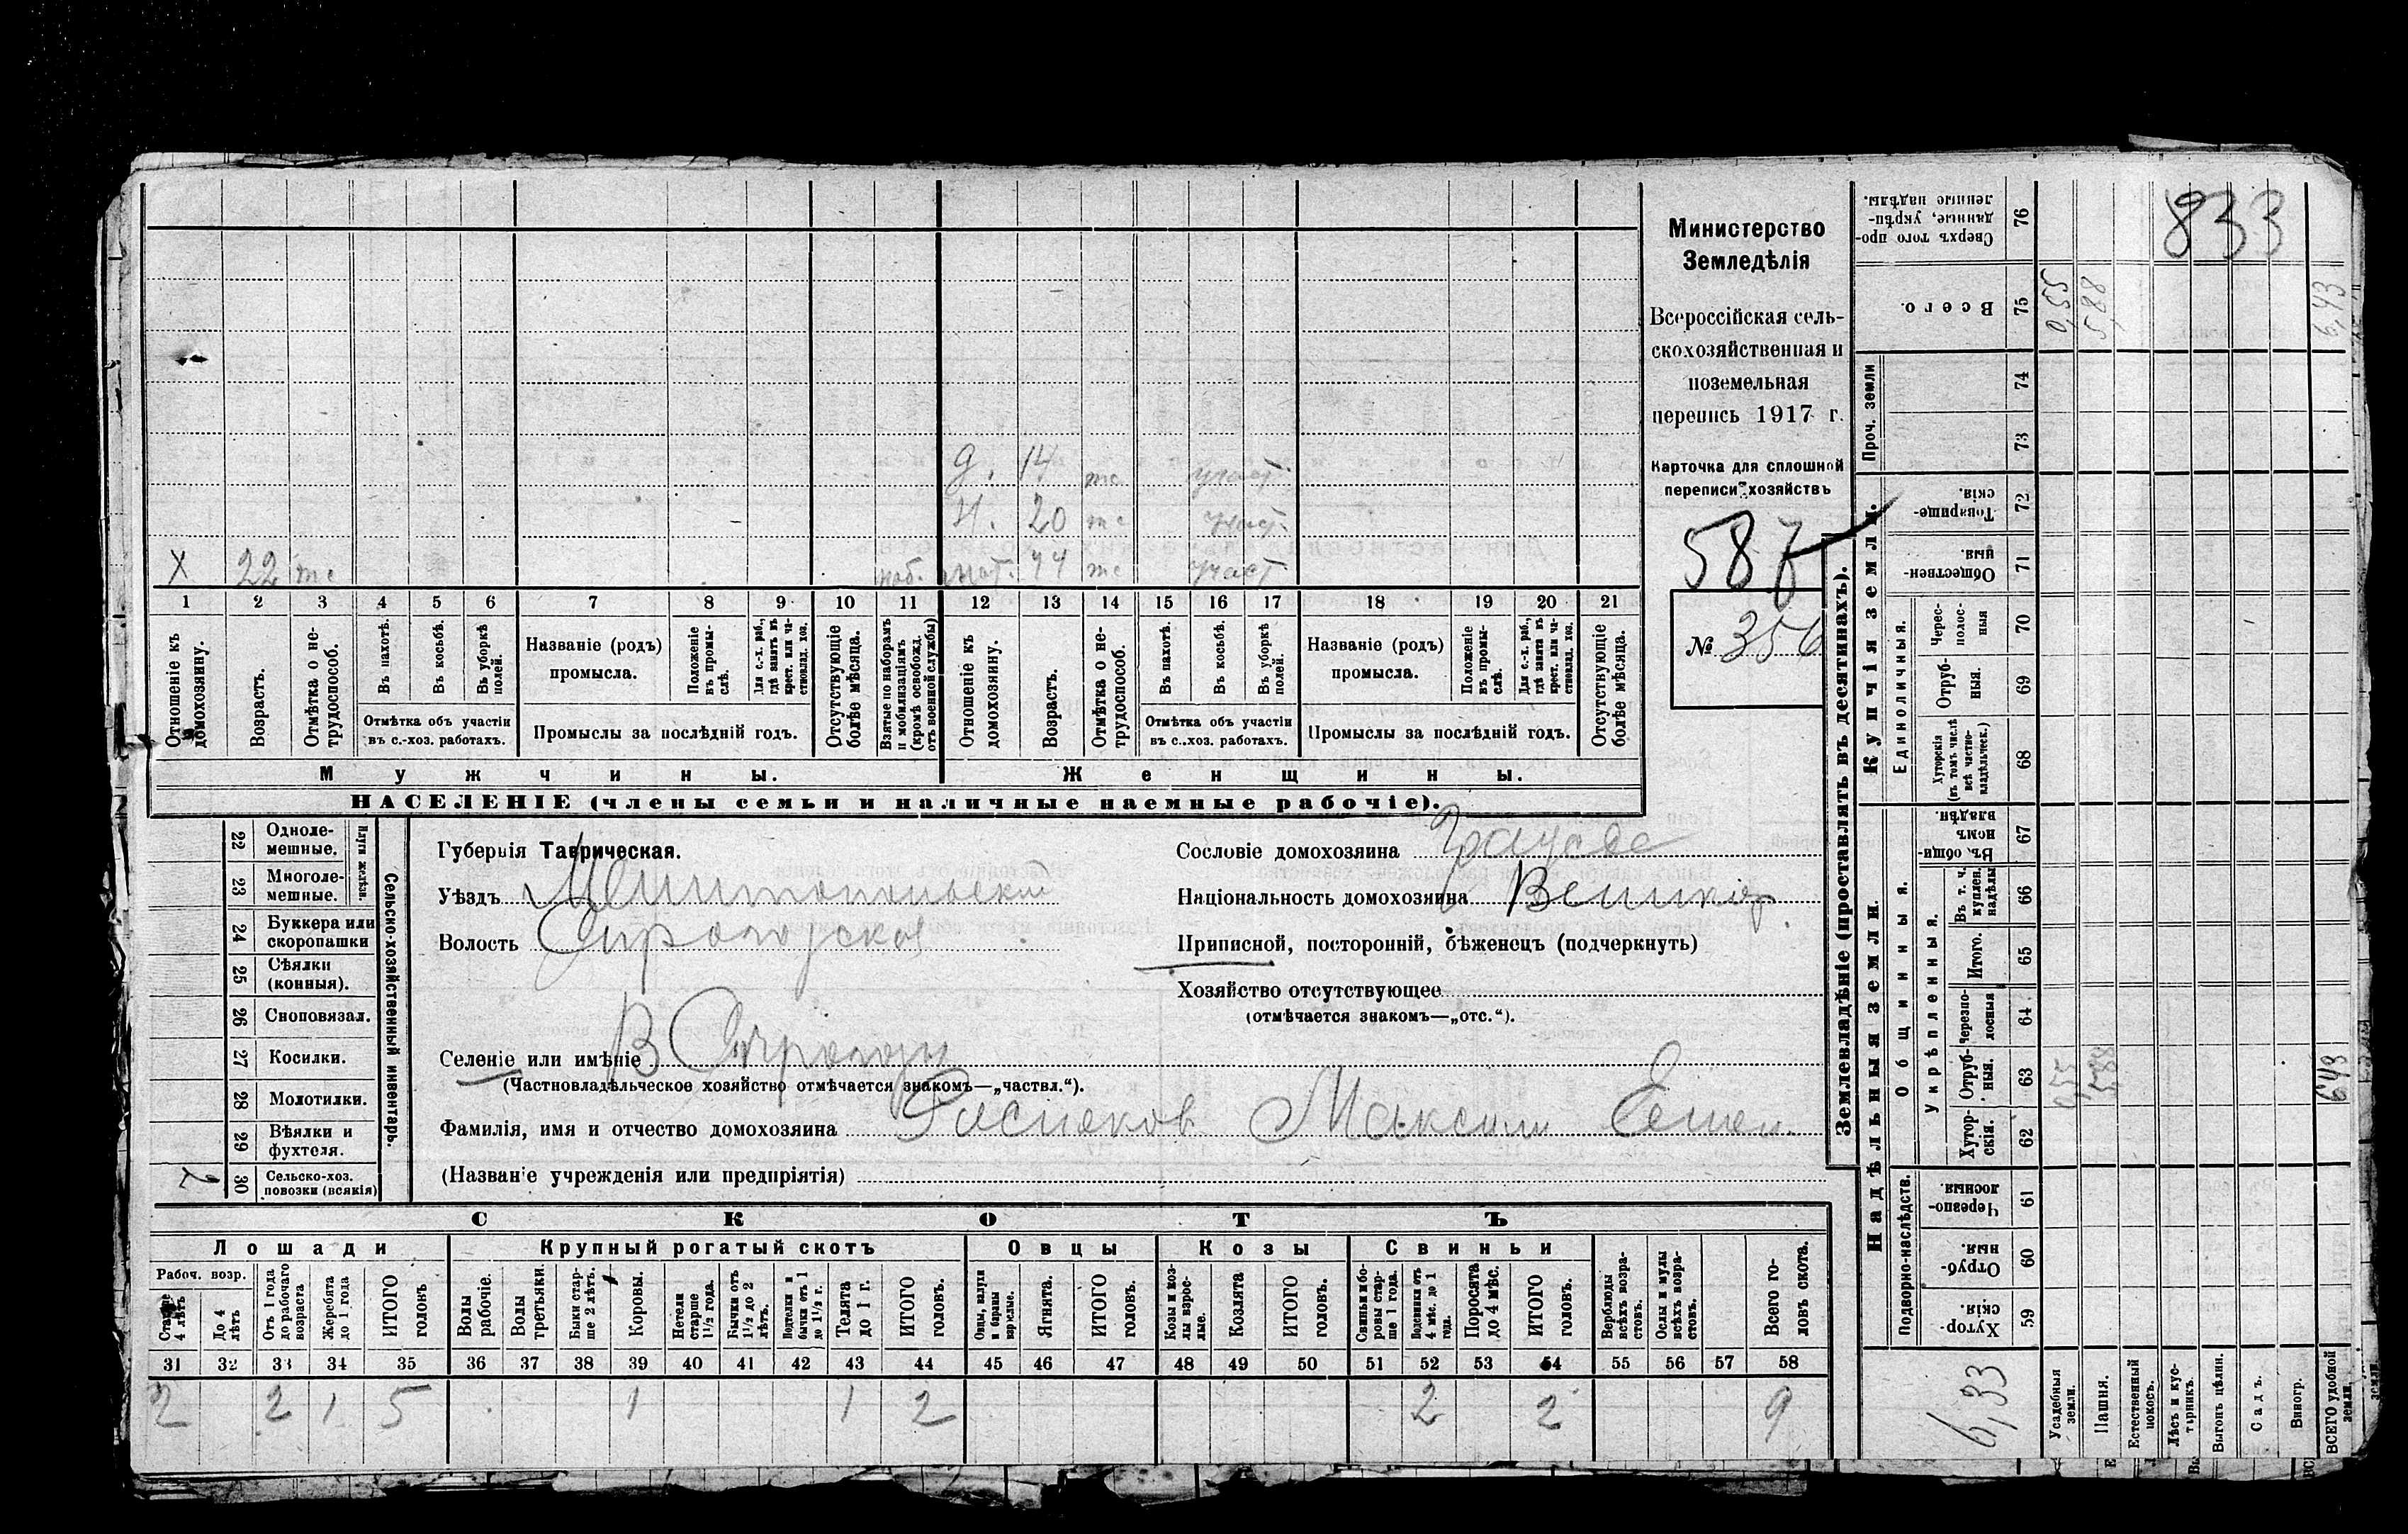 Министерство
Земледѣлія
Всероссійская сель-
скохозяйственная и
поземельная
перепись 1917 г.
Карточка для сплошной
переписи хозяйствъ
587
№ 356
833
д. 14 участ.
20 участ.
X 22 моб. мат. 44 участ.
1 2 3 4 5 6 7 8 9 10 11 12 13 14 15 16 17 18 19 20 21
Отношеніе къ домохозяину.
Возрастъ.
Отмѣтка о не-трудоспособ.
Въ пахотѣ.
Въ косьбѣ.
Въ уборкѣ полей.
Отмѣтка объ участіи
въ с.-хоз. работахъ.
Названіе (родъ)
промысла.
Положеніе въ промы-слѣ.
Для с.-х. раб., гдѣ занятъ въ крест. или ча-стновлад. хоз.
Промыслы за послѣдній годъ.
Отсутствующіе болѣе мѣсяца.
Взятые по наборамъ и мобилизаціямъ (кромѣ освобожд. отъ военной службы)
Отношеніе къ домохозяину.
Возрастъ.
Отмѣтка о не-трудоспособ.
Въ пахотѣ.
Въ косьбѣ.
Въ уборкѣ полей.
Отмѣтка объ участіи
въ с.-хоз. работахъ.
Названіе (родъ)
промысла.
Положеніе въ промы-слѣ.
Для с.-х. раб., гдѣ занятъ въ крест. или ча-стновлад. хоз.
Промыслы за послѣдній годъ.
Отсутствующіе болѣе мѣсяца.
Мужчины. Женщины.
НАСЕЛЕНІЕ (члены семьи и наличные наемные рабочіе).
Сельско-хозяйственный инвентарь.
Плуги желѣзн.
22 Одноле-мешные.
23 Многоле-мешные.
24 Буккера или скоропашки
25 Сѣялки (конныя).
26 Сноповязал.
27 Косилки.
28 Молотилки.
29 Вѣялки и фухтеля.
30 Сельско-хоз. повозки (всякія)
Губернія Таврическая.
Уѣздъ Мелитопольскій
Волость
Селеніе или имѣніе В
(Частновладѣльческое хозяйство отмѣчается знакомъ—„частвл.“).
Фамилія, имя и отчество домохозяина Максим
(Названіе учрежденія или предпріятія)
Сословіе домохозяина
Національность домохозяина Великор
Приписной, посторонній, бѣженецъ (подчеркнуть)
Хозяйство отсутствующее
(отмѣчается знакомъ—„отс.“).
СКОТЪ
Лошади Крупный рогатый скотъ Овцы Козы Свиньи
Рабоч. возр.
Старше 4 лѣтъ
До 4 лѣтъ
Отъ 1 года до рабочаго возраста
Жеребята до 1 года
ИТОГО головъ
Волы рабочіе.
Волы третьяки.
Быки стар-ше 2 лѣтъ.
Коровы.
Нетели старше 1 1/2 года.
Бычки отъ 1 1/2 до 2 лѣтъ.
Подтелки и бычки отъ 1 до 1 1/2 г.
Телята до 1 г.
ИТОГО головъ.
Овцы, валухи и бараны взрослые.
Ягнята.
ИТОГО головъ.
Козы и коз-лы взрос-лые.
Козлята
ИТОГО головъ.
Свиньи и бо-ровы стар-ше 1 года.
Подсвинки отъ 4 мѣс. до 1 года.
Поросята до 4 мѣс.
ИТОГО головъ.
Верблюды всѣхъ возра-стовъ.
Ослы и мулы всѣхъ возра-стовъ.
Всего го-ловъ скота.
31 32 33 34 35 36 37 38 39 40 41 42 43 44 45 46 47 48 49 50 51 52 53 54 55 56 57 58
2 2 1 5 1 1 2 2 2 9
Землевладѣніе (проставлять въ десятинахъ).
Купчія земли.
Надѣльныя земли.
Сверхъ того про-данные, укрѣп-ленные надѣлы. 76
Всего. 75
Проч. земли 74 73
Товарище-скія. 72
Обществен-ныя 71
Единоличныя.
Черес-полос-ныя 70
Отруб-ныя. 69
Хуторскія (въ томъ числѣ всѣ частно-владѣльческ.) 68
Общинныя.
Въ общи-номъ владѣн. 67
Укрѣпленныя.
Въ т. ч. куплен. надѣлы 66
Итого. 65
Черезпо-лосныя 64
Отруб-ныя. 63
Хутор-скія. 62
Подворно-наслѣдств.
Черезпо-лосныя. 61
Отруб-ныя. 60
Хутор-скія. 59
Усадебныя земли.
Пашня.
Естественный покосъ.
Лѣсъ и кус-тарникъ.
Выгонъ цѣлин.
Садъ.
Виногр.
ВСЕГО удобной земли.
0,55 5,88 6,43
0,55 5,88 6,43
6,33